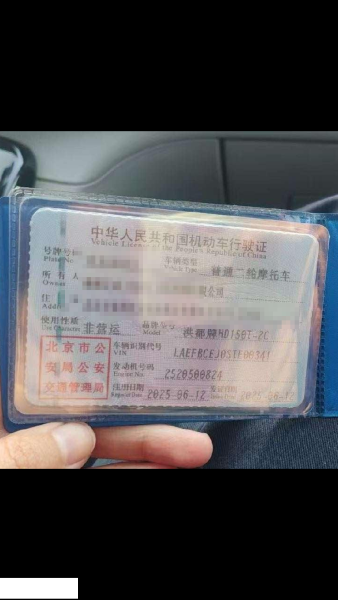 中华人民共和国机动车行驶证
Vehicle License of the People's Republic of China
号牌号码 车辆类型 普通二轮摩托车
Plate No. Vehicle Type
所有人 有限公司
Owner
住
Address
使用性质 非营运 品牌型号
Use Character Model
北京市公 车辆识别代号
安局公安 VIN
交通管理局 发动机号码 2S20500824
Engine No.
注册日期 2025-06-12 发证日期 2025-06-12
Register Date Issue Date